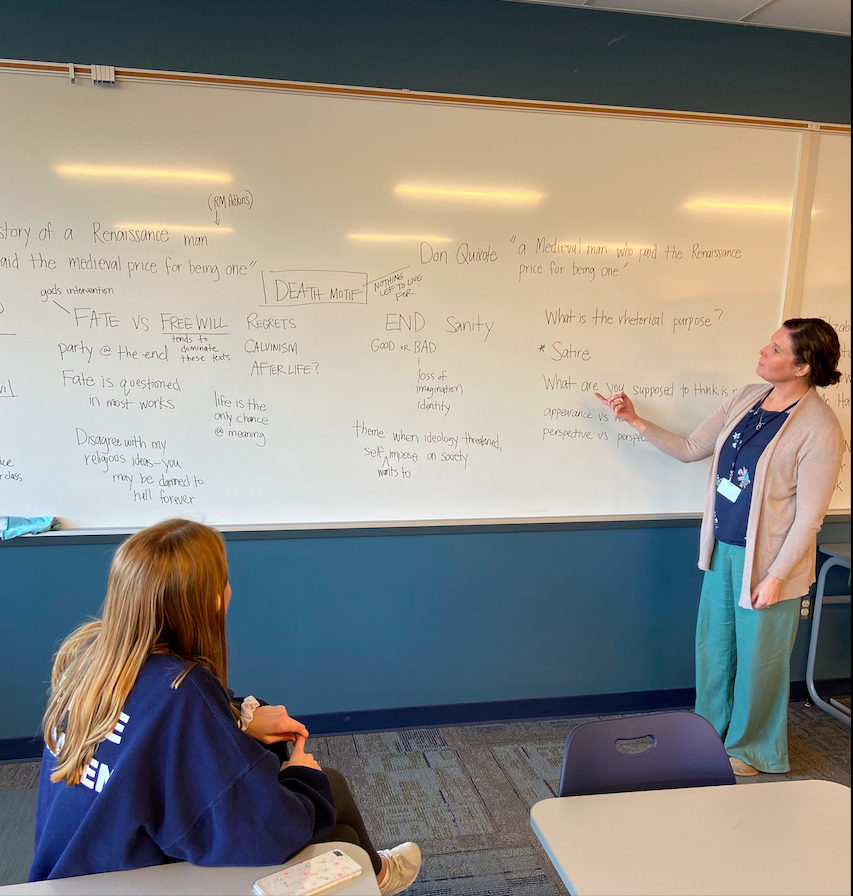 (RM Adkins)
story of a Renaissance man
aid the medieval price for being one"
gods intervention
FATE vs FREE WILL
tends to
dominate
these texts
party @ the end
Fate is questioned
in most works
Disagree with my
religious ideas—you
may be damned to
hell forever
DEATH MOTIF
NOTHING
LEFT TO LIVE
FOR
REGRETS
CALVINISM
AFTERLIFE?
life is the
only chance
@ meaning
Don Quixote "a Medieval man who paid the Renaissance
price for being one"
END Sanity
GOOD OR BAD
loss of
imagination
identity
theme: when ideology threatened,
self impose on society
wants to
What is the rhetorical purpose?
* Satire
What are you supposed to think is
appearance vs
perspective vs
class
Elizab